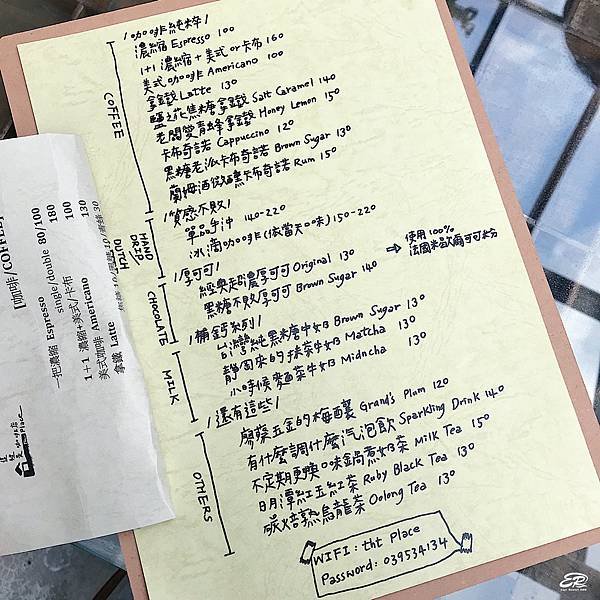 /咖啡純粹/
濃縮 Espresso 100
1+1 濃縮+美式or卡布 160
美式咖啡 Americano 100
拿鐵 Latte 130
鹽之花焦糖拿鐵 Salt Caramel 140
老闆愛青蜂拿鐵 Honey Lemon 150
卡布奇諾 Cappuccino 120
黑糖老派卡布奇諾 Brown Sugar 130
蘭姆酒微醺卡布奇諾 Rum 150
COFFEE
/質感不敗/
單品手沖 140-220
冰滴咖啡(依當天口味)150-220
HAND DRIP
DUTCH
/厚可可/
經典超濃厚可可 Original 130
黑糖不敗厚可可 Brown Sugar 140
→ 使用100%
法國米歇爾可可粉
CHOCOLATE
/補鈣系列/
台灣純黑糖牛奶 Brown Sugar 130
靜岡來的抹茶牛奶 Matcha 130
小時候麵茶牛奶 Midncha 130
MILK
/還有這些/
廖葵五金的梅釀 Grand's Plum 120
有什麼調什麼汽泡飲 Sparkling Drink 140
不定期更換口味鍋煮奶茶 Milk Tea 150
日月潭紅玉紅茶 Ruby Black Tea 130
碳焙熟烏龍茶 Oolong Tea 130
OTHERS
WIFI: tht Place
Password: 039534134
[咖啡/COFFEE]
一把濃縮 Espresso
single/double 80/100
1+1 濃縮+美式/卡布 180
美式咖啡 Americano 100
拿鐵 Latte 130
place
ER